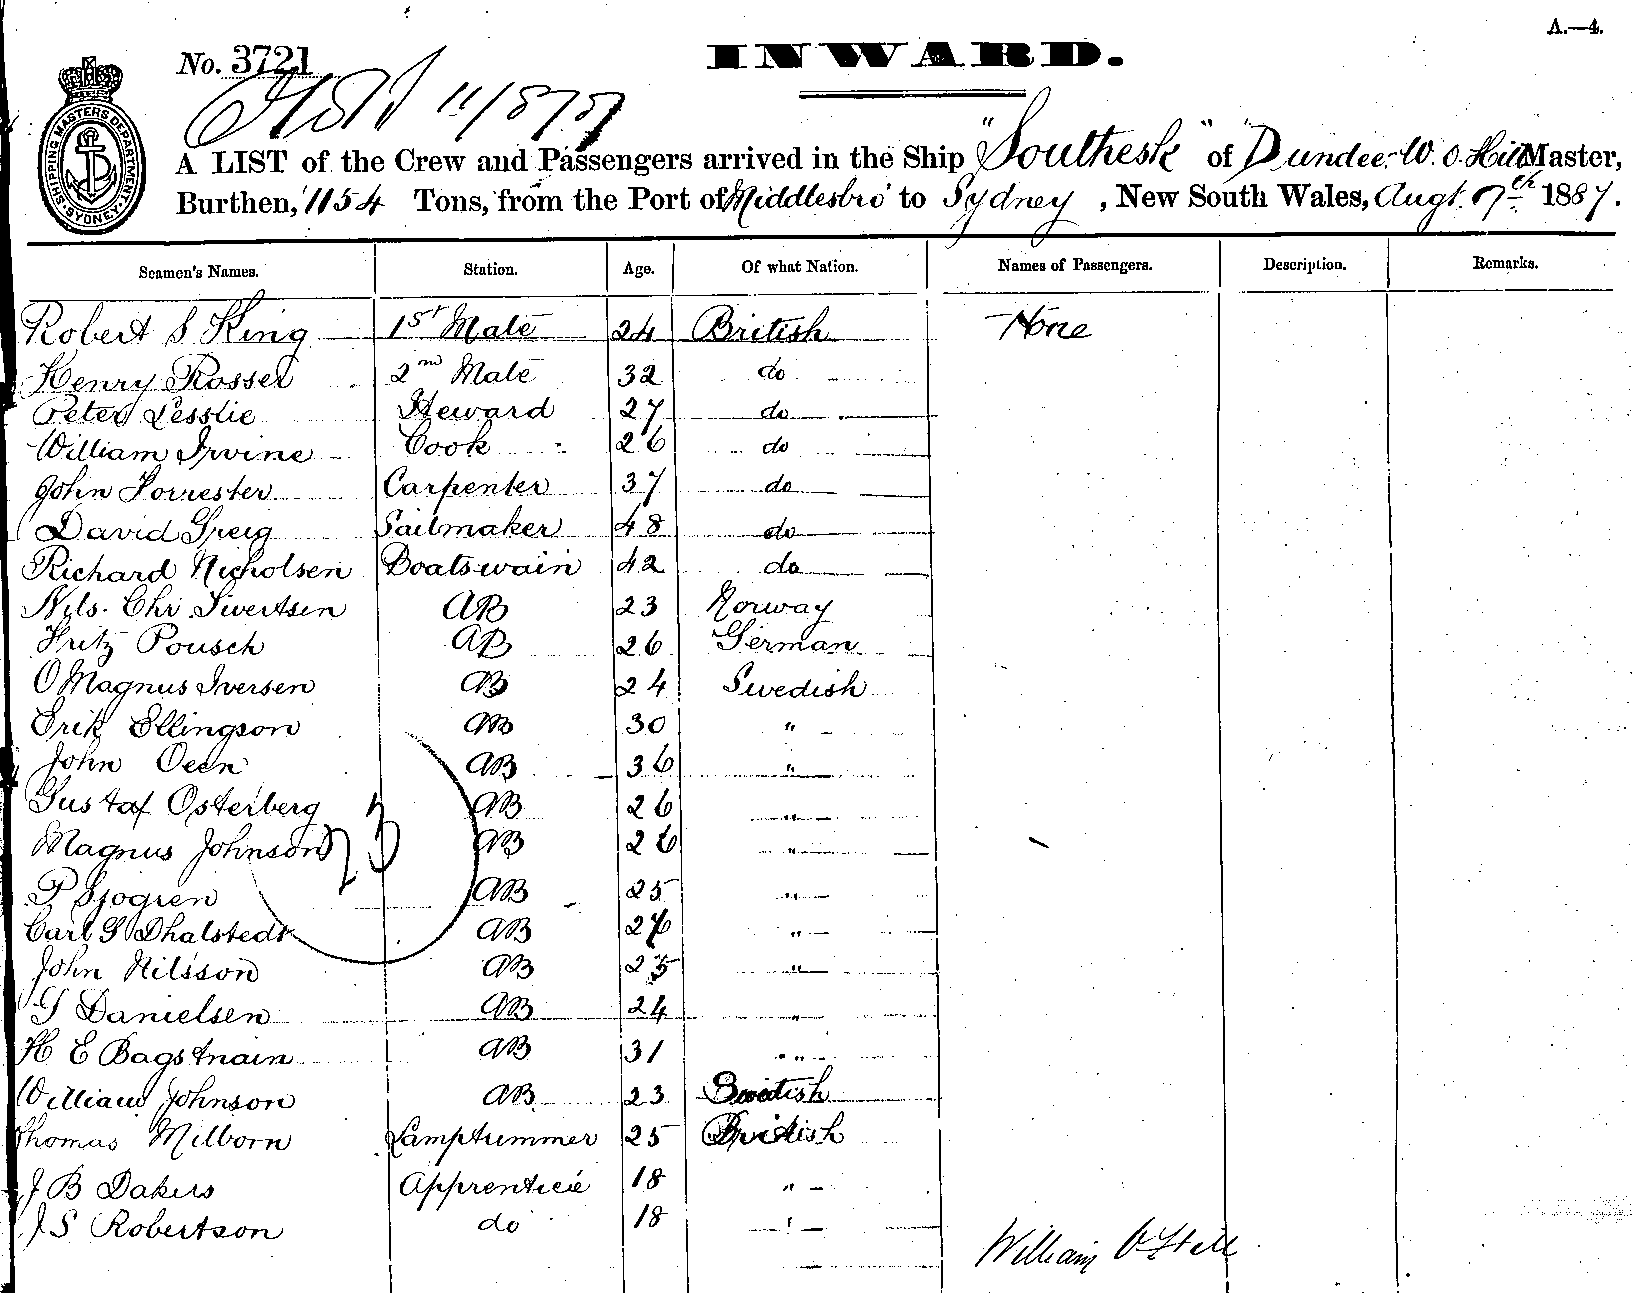 A.—4.
No. 3721
INWARD.
SHIPPING MASTERS DEPARTMENT SYDNEY
A LIST of the Crew and Passengers arrived in the Ship "Southesk" of Dundee, W. O. Hill Master,
Burthen, 1154 Tons, from the Port of Middlesbro' to Sydney, New South Wales, Augt. 7th 1887.
Seamen's Names. Station. Age. Of what Nation. Names of Passengers. Description. Remarks.
Robert S King 1st Mate 24 British None
Henry Rosser 2nd Mate 32 do
Peter Lesslie Steward 27 do
William Irvine Cook 26 do
John Forrester Carpenter 37 do
David Greig Sailmaker 48 do
Richard Nicholsen Boatswain 42 do
Nils. Chr. Sivertsen AB 23 Norway
Fritz Pousch AB 26 German
O Magnus Iversen AB 24 Swedish
Erik Ellingson AB 30 "
John Oeen AB 36 "
Gustaf Osterberg AB 26 "
Magnus Johnson AB 26 "
23
P Sjogren AB 25 "
Carl G Dhalstedt AB "
John Nilsson AB 25 "
G Danielsen AB 24 "
H E Bagstnain AB 31 "
William Johnson AB 23 Swedish
Thomas Milborn Lamptrimmer 25 British
J B Dakers Apprentice 18 "
J. S Robertson do 18 "
William O Hill